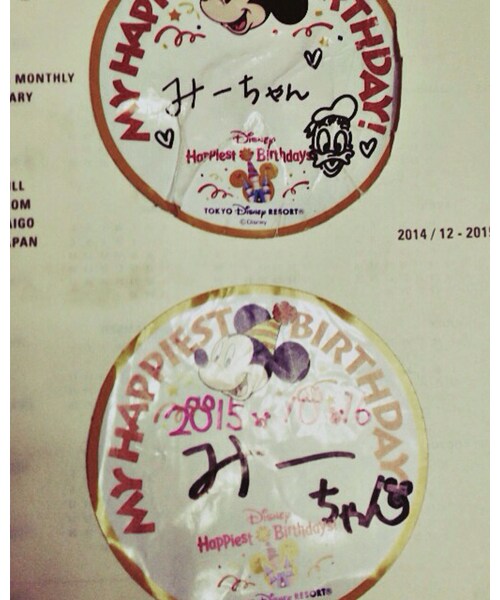 MONTHLY
ARY
MY HAPP
BIRTHDAY!
みーちゃん
Disney
Happiest Birthdays
TOKYO Disney RESORT®
©Disney
LL
OM
AIGO
PAN
2014 / 12 - 2015
MY HAPPIEST BIRTHDAY
2015
みー
ちゃん
Disney
Happiest Birthdays
Disney RESORT®